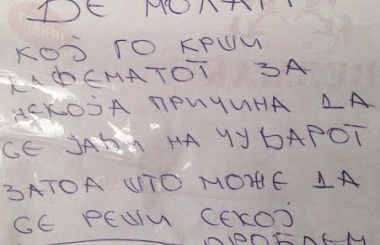 ЅЕ МОЛАМ
КОЈ ГО КРШИ
КАФЕМАТОТ ЗА
НЕКОЈА ПРИЧИНА ДА
СЕ ЈАВИ НА ЧУВАРОТ
ЗАТОА ШТО МОЖЕ ДА
СЕ РЕШИ СЕКОЈ
ПРОБЛЕМ